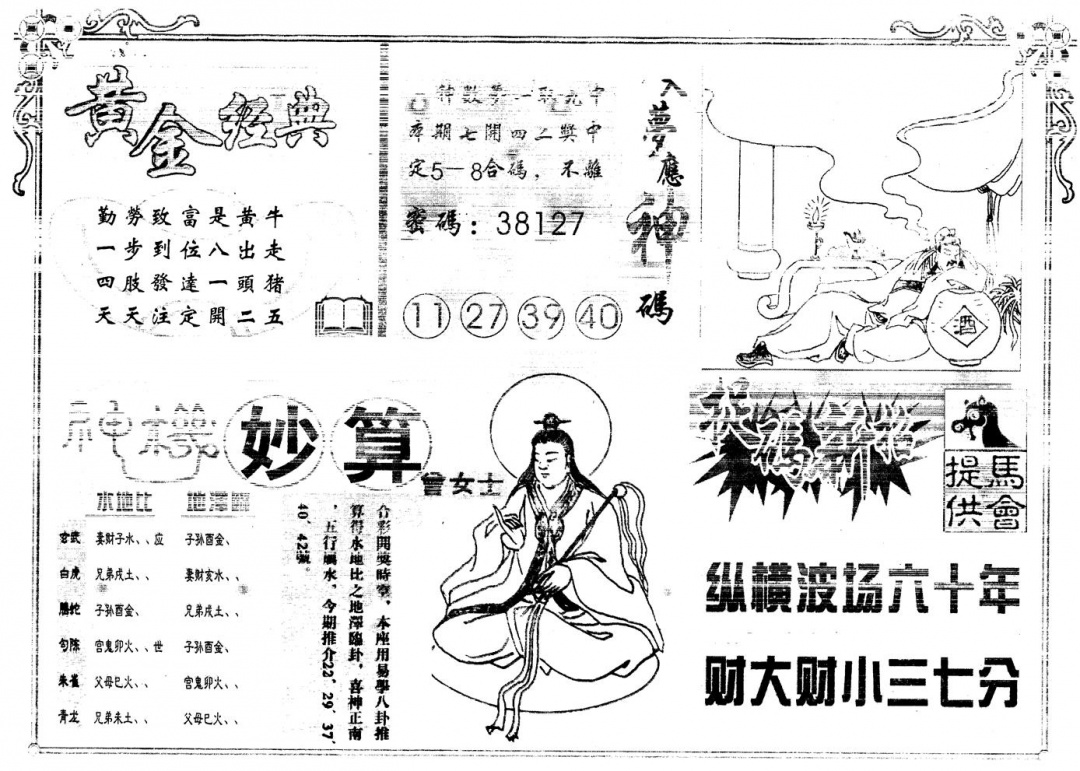 黄金經典
勤勞致富是黄牛
一步到位八出走
四肢發達一頭猪
天天注定開二五
入夢應神碼
特數夢一取九中
率期七開四二獎中
定5—8合碼，不離
密碼：38127
11 27 39 40
酒
神機妙算
曾女士
水地比 地澤臨
玄武 妻财子水、、应 子孙酉金、
白虎 兄弟戌土、、 妻财亥水、、
螣蛇 子孙酉金、 兄弟戌土、、
句陈 官鬼卯火、、世 子孙酉金、
朱雀 父母巳火、、 官鬼卯火、、
青龙 兄弟未土、、 父母巳火、、
合彩開獎時空，本座用易學八卦推
算得水地比之地澤臨卦，喜神正南
，五行屬水，今期推介22、29、37、
40、42號。
馬會提供
纵横波场六十年
财大财小三七分